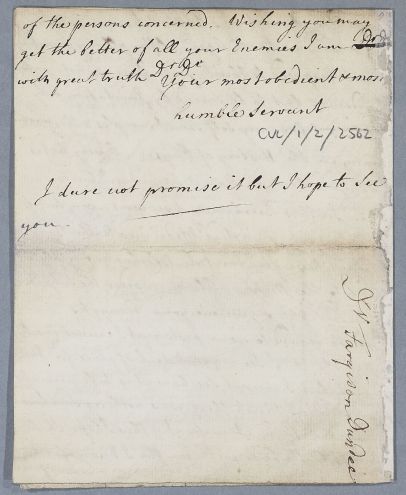 of the persons concerned. Wishing you may
get the better of all your Enemies I am
with great truth Do Dr
Your most obedient & most
humble Servant
CUL/1/2/2562
I dare not promise it but I hope to See
you.
Dr Fargison Dundee